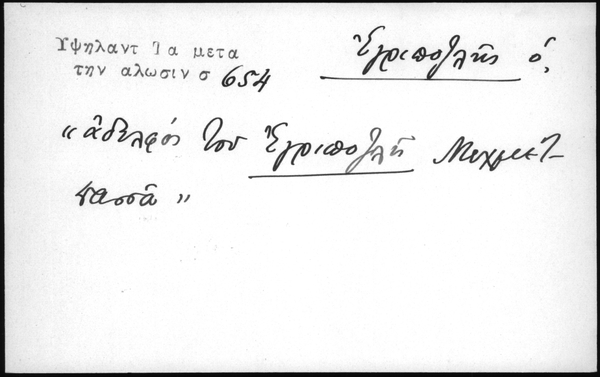 Υψηλαντ Τα μετα
την αλωσιν σ 654
Ἐγριποζλῆς ὁ,
„ ἀδελφός του Ἐγριποζλῆ Μεχμετ-
πασσᾶ „